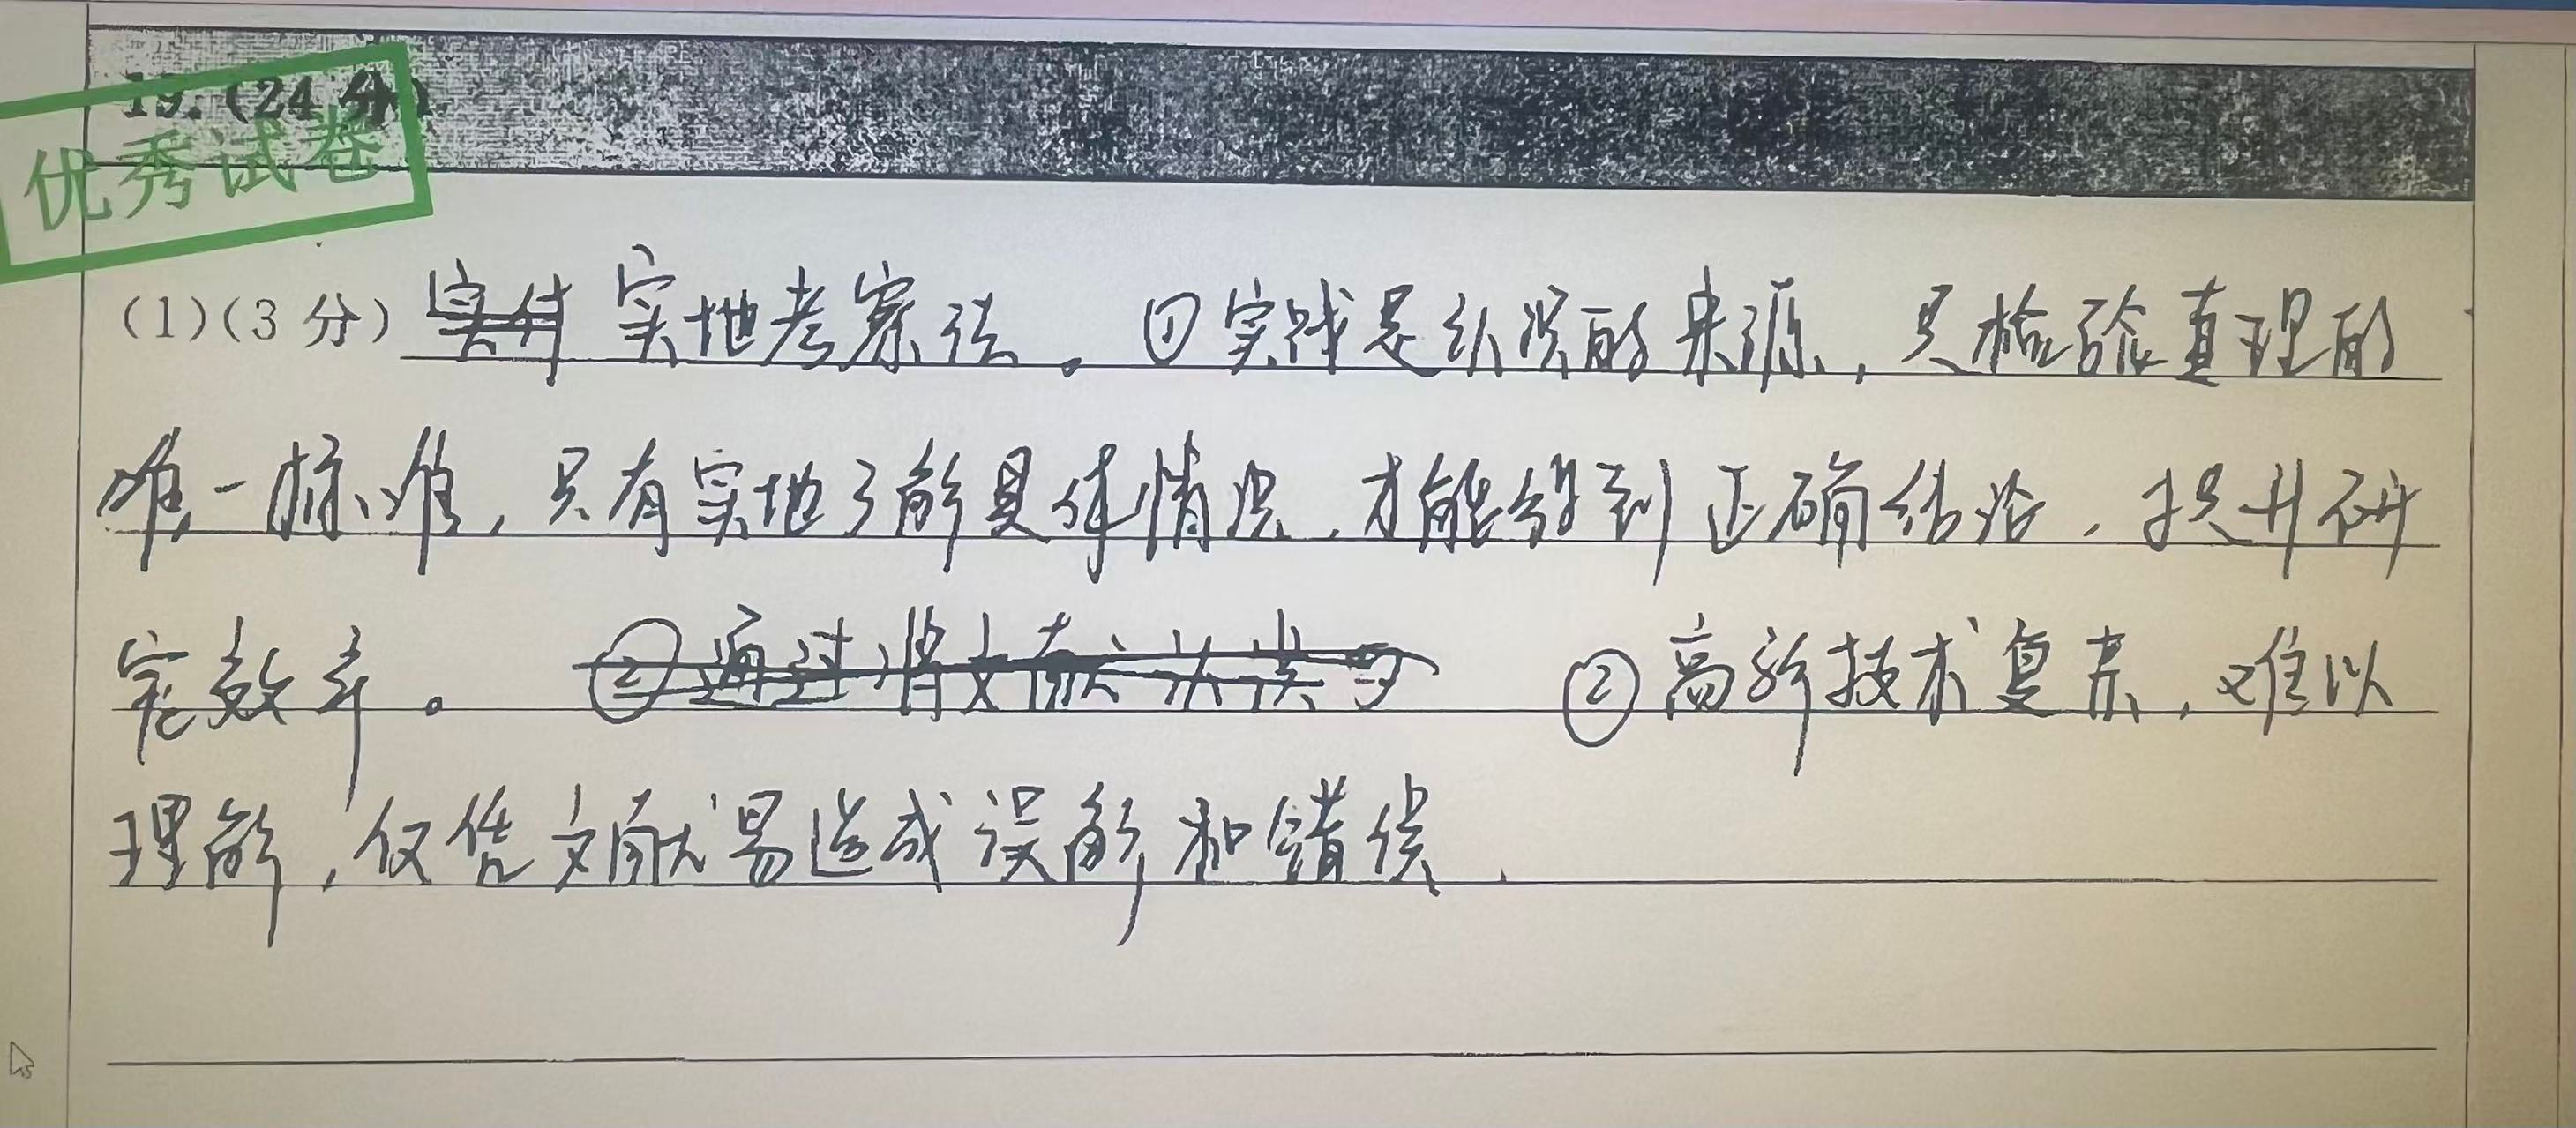 19.(24分)
优秀试卷
(1)(3分) 实地考察法。①实践是认识的来源,是检验真理的
唯一标准,只有实地了解具体情况,才能得到正确结论,提升研
究效率。 ②通过将文献分类 ②高新技术复杂,难以
理解,仅凭文献易造成误解和错误.